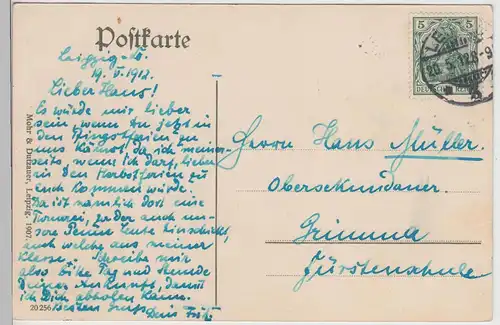 Postkarte
Leipzig
19. V. 1912.
Lieber Hans!
Es würde mir lieber
sein, wenn Du jetzt in
den Pfingstferien zu
uns kämst, da ich meiner-
seits, wenn ich darf, lieber
in den Herbstferien zu
euch kommen würde.
Da ist nämlich dort eine
zu der auch un-
sere Leute
auch welche aus meiner
Klasse. Schreibe mir
also bitte Tag und Stunde
Deiner Ankunft, damit
ich Dich abholen kann.
Besten Gruß
Dein Fritz
Herrn Hans Müller
Obersekundaner
Grimma
Fürstenschule
Mohr & Dutzauer, Leipzig, 1907.
20256
5 5
DEUTSCHES REICH
LEIPZIG
20.5.12.8-9
2